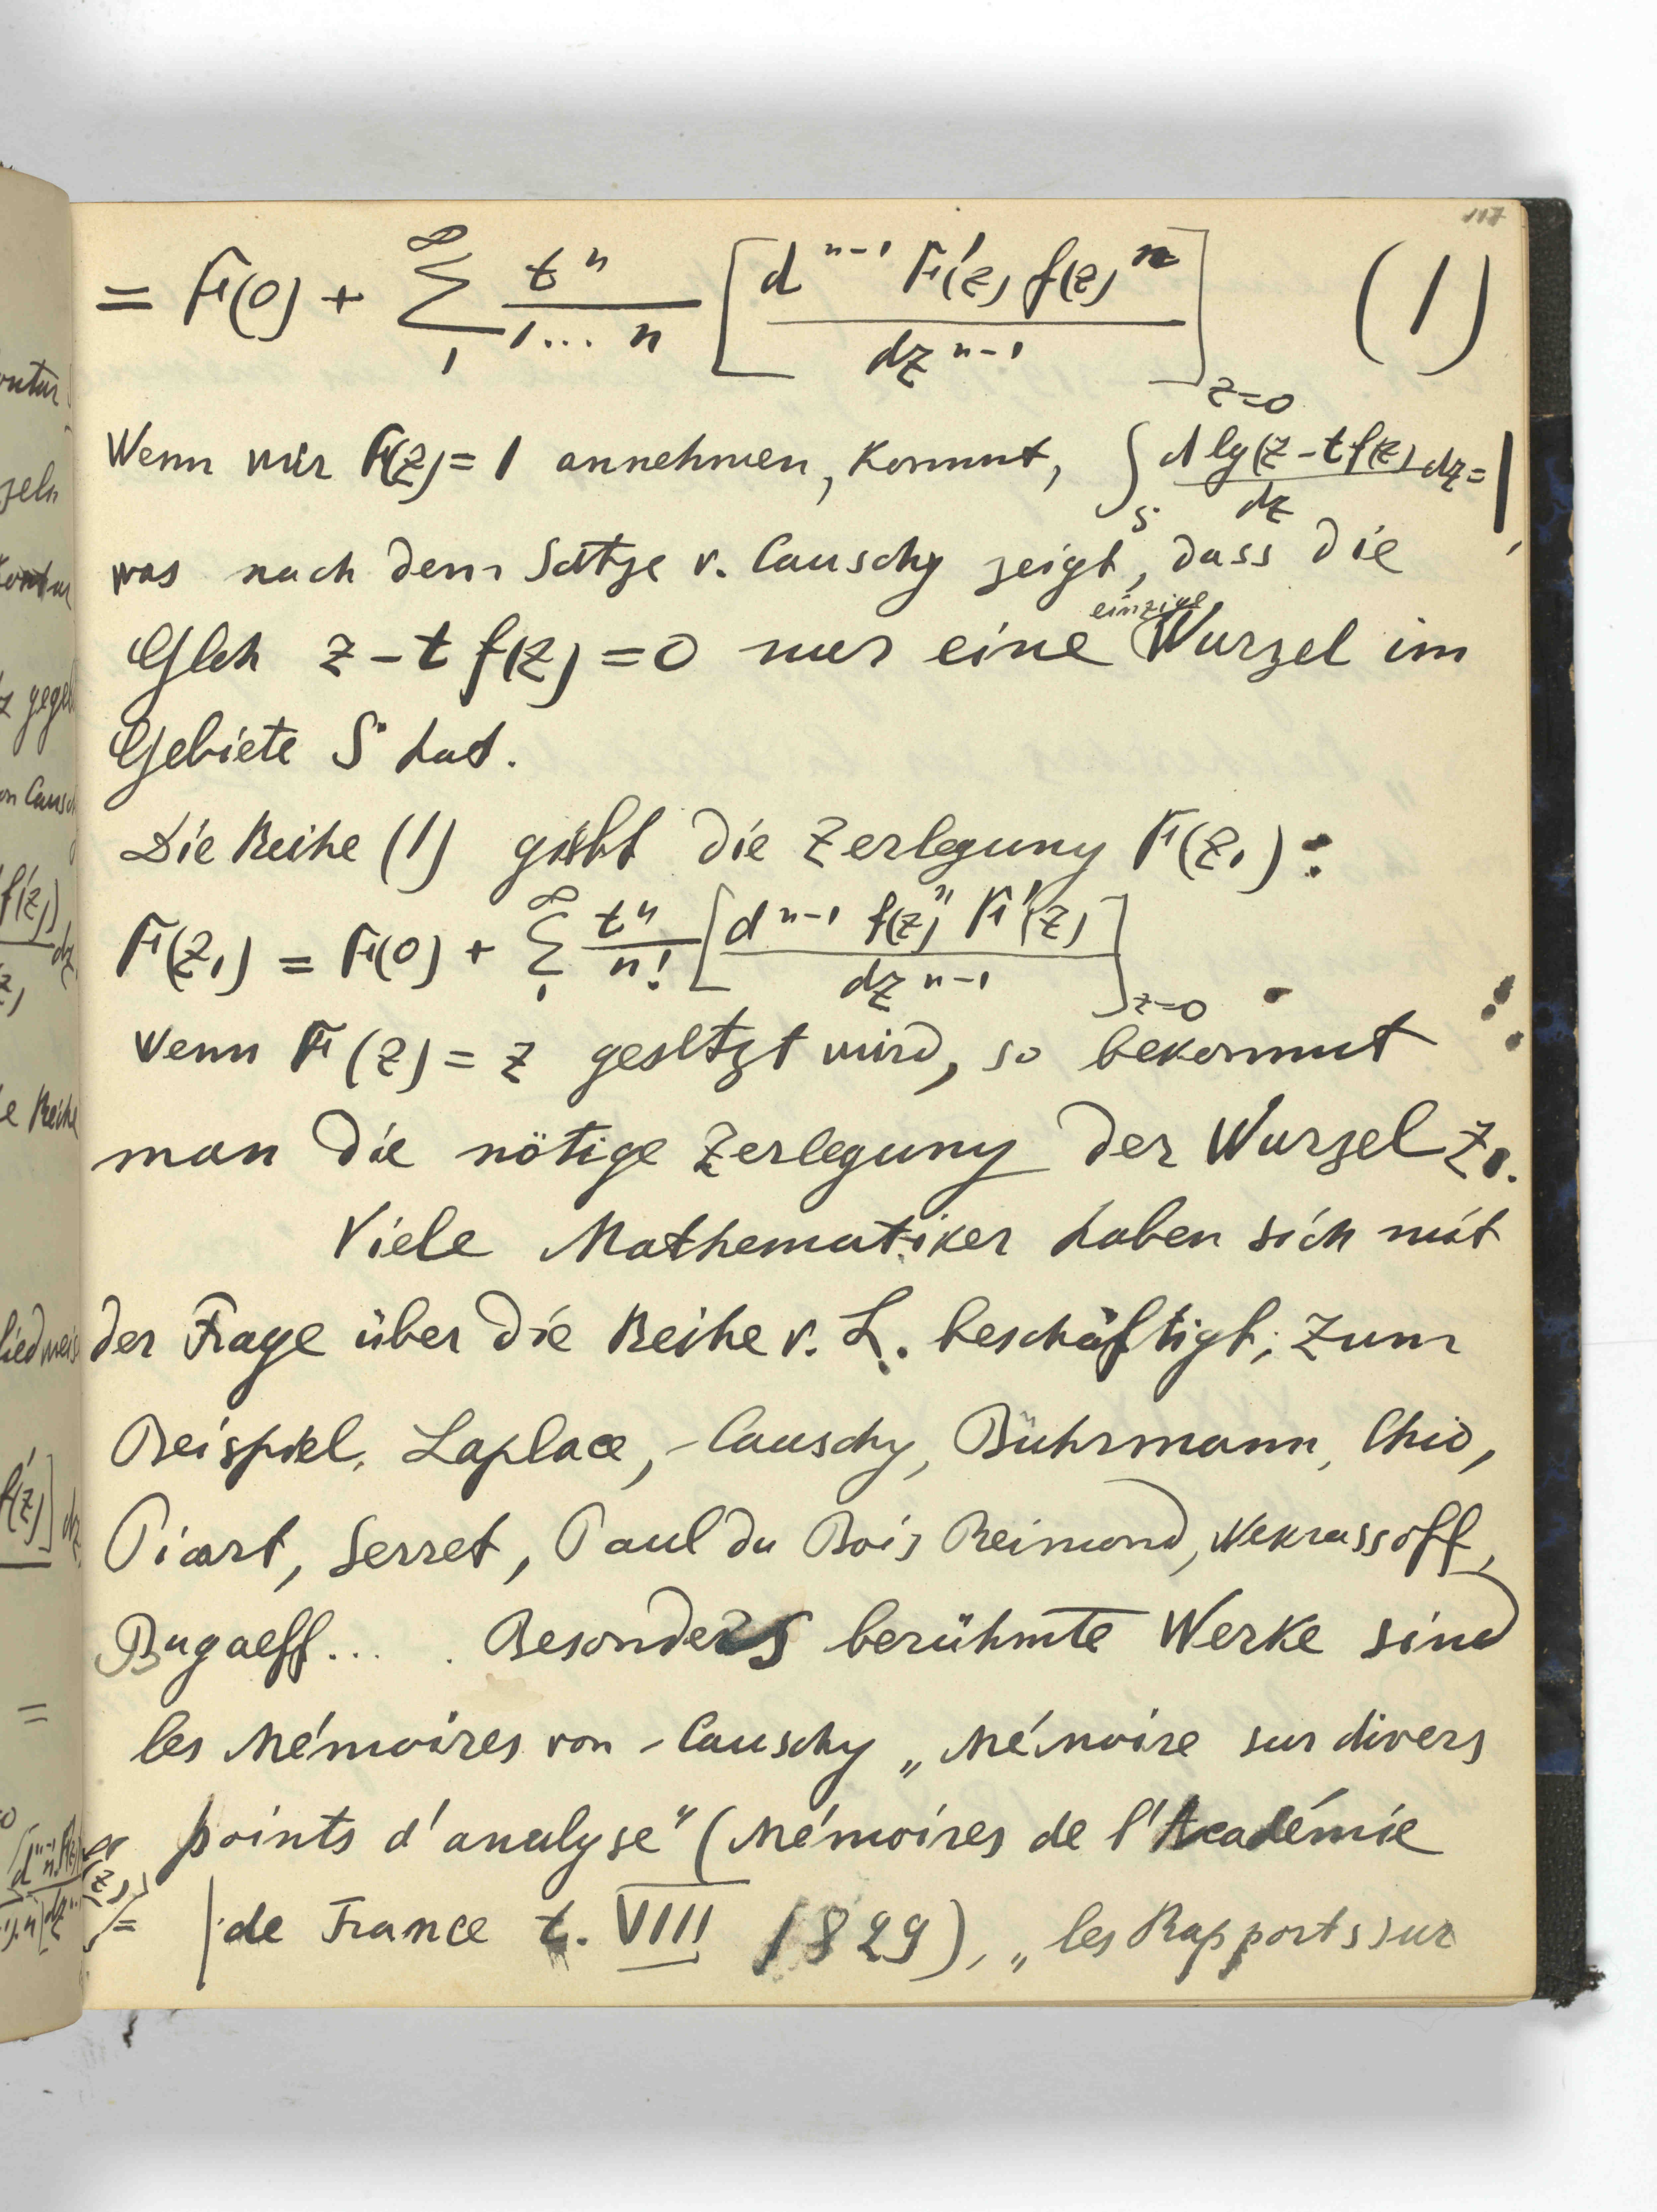 117
= F(0) + ∑₁^∞ tⁿ/(1...n) [d^{n-1} F'(z) f(z)ⁿ / dz^{n-1}]_{z=0} (1)
Wenn wir F(z) = 1 annehmen, kommt, ∫_S d lg(z - t f(z)) / dz dz = 1,
was nach dem Satze v. Causchy zeigt, dass die
einzige
Glch z - t f(z) = 0 nur eine Wurzel im
Gebiete S hat.
Die Reihe (1) giebt die Zerlegung F(z₁):
F(z₁) = F(0) + ∑₁^∞ tⁿ/n! [d^{n-1} f(z)ⁿ F'(z) / dz^{n-1}]_{z=0}.
Wenn F(z) = z gesetzt wird, so bekommt
man die nötige Zerlegung der Wurzel z₁.
Viele Mathematiker haben sich mit
der Frage über die Reihe v. L. beschäftigt; zum
Beispiel. Laplace, Causchy, Bührmann, Chio,
Piart, Serret, Paul du Bois Reimond, Nekrassoff,
Bugaeff... . Besonders berühmte Werke sind
les Mémoires von Causchy „Mémoire sur divers
points d'analyse" (Mémoires de l'Académie
de France t. VIII 1829), „les Rapports sur